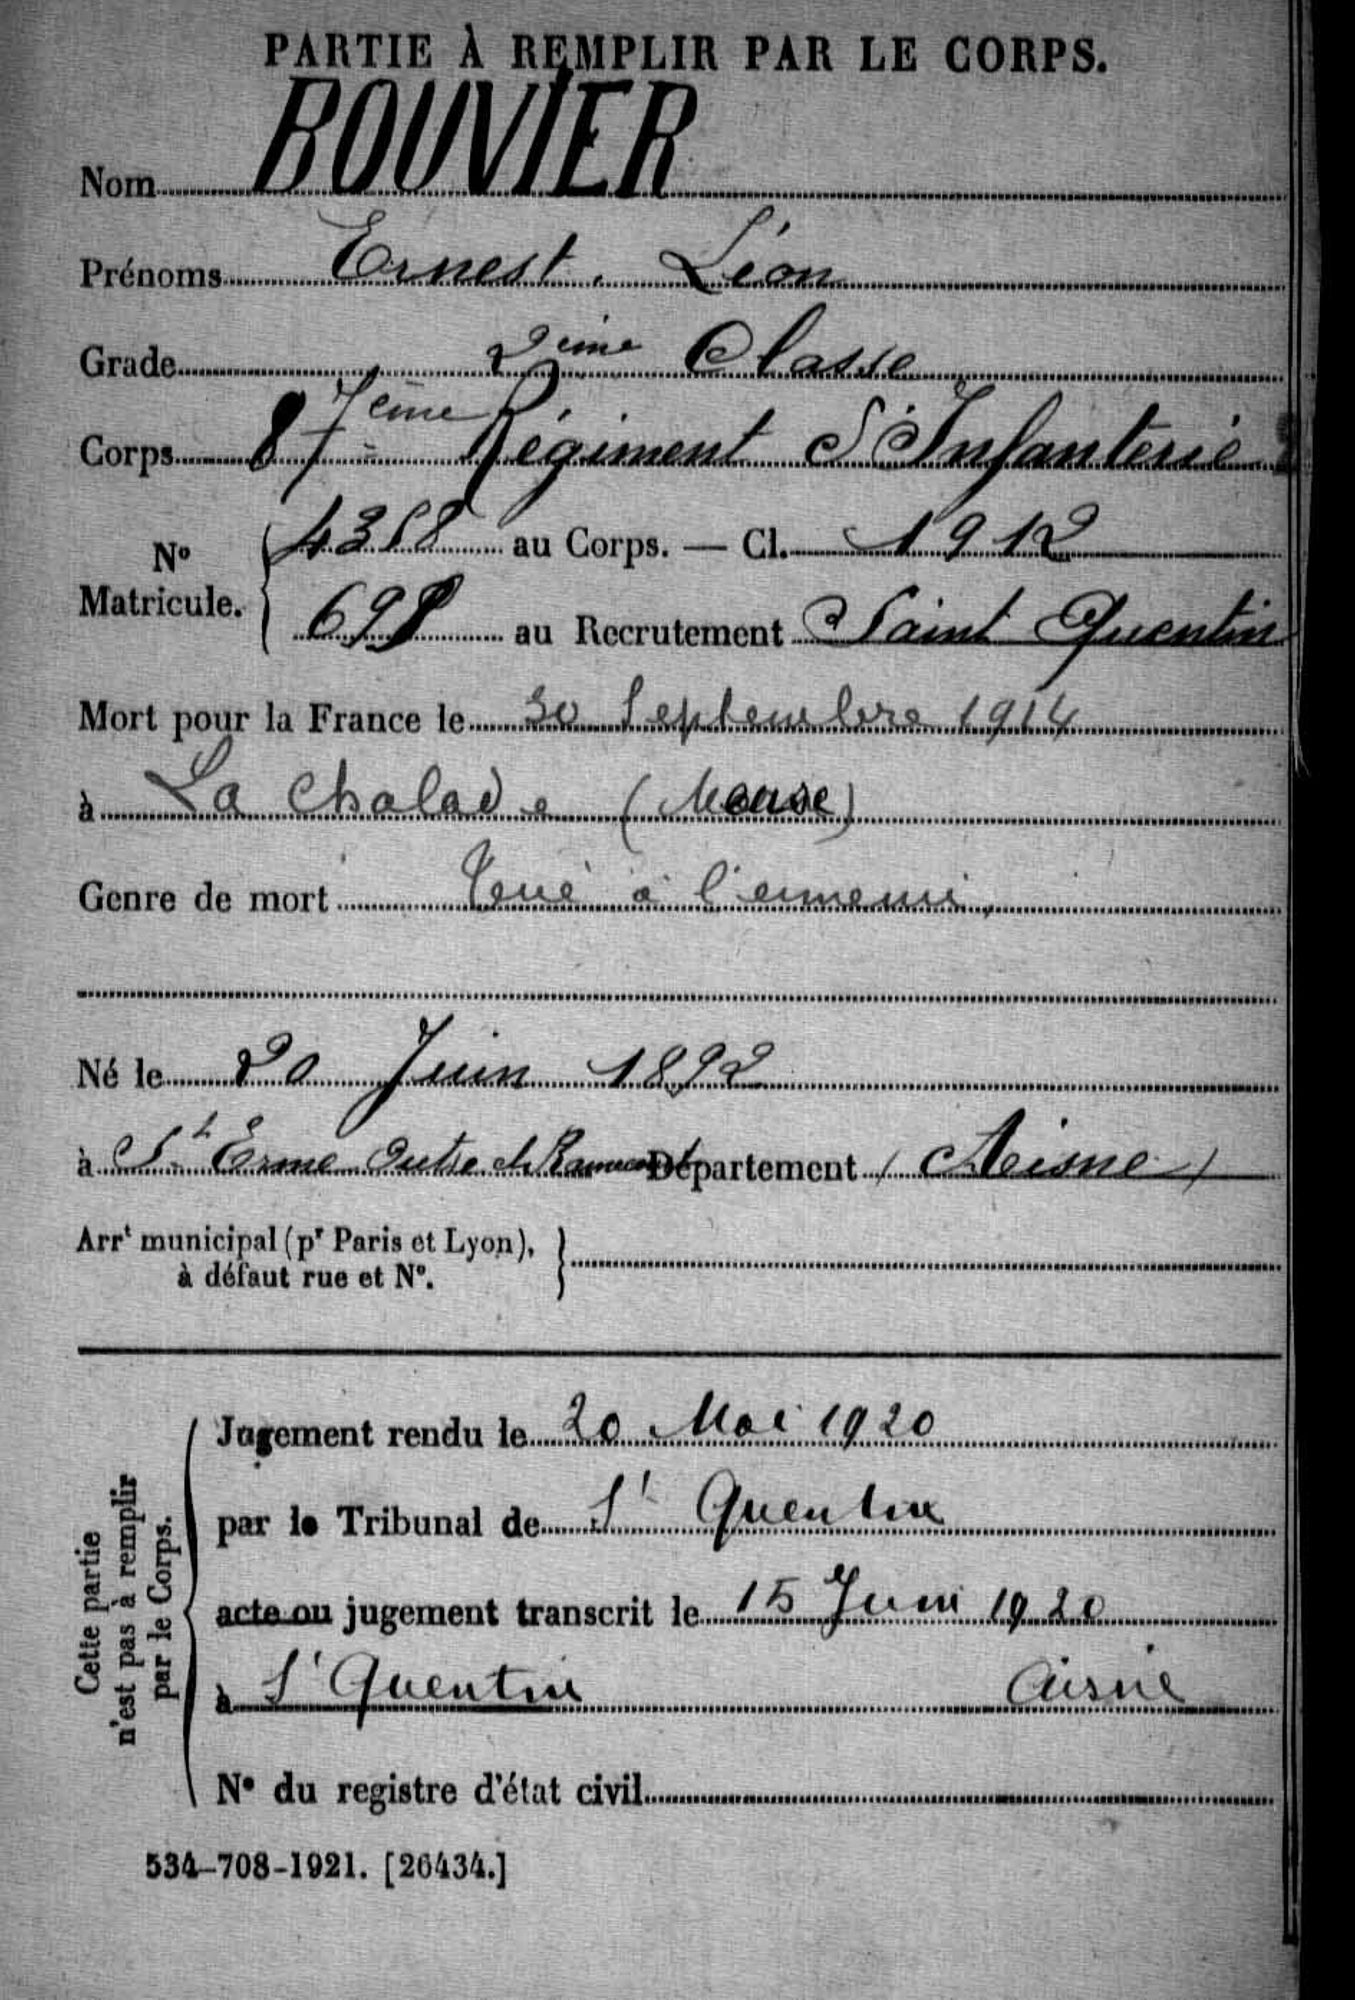 PARTIE À REMPLIR PAR LE CORPS.
Nom BOUVIER
Prénoms Ernest, Léon
Grade 2ème Classe
Corps 87ème Régiment d'Infanterie
No Matricule. { 4358 au Corps. — Cl. 1912
698 au Recrutement Saint Quentin
Mort pour la France le 30 Septembre 1914
à La Chalade (Meuse)
Genre de mort Tué à l'ennemi.
Né le 20 Juin 1892
à St Erme Outre et Ramecourt Département (Aisne)
Arrt municipal (pr Paris et Lyon),
à défaut rue et No. }
Cette partie
n'est pas à remplir
par le Corps.
Jugement rendu le 20 Mai 1920
par le Tribunal de St Quentin
acte ou jugement transcrit le 15 Juin 1920
à St Quentin Aisne
No du registre d'état civil
534-708-1921. [26434.]